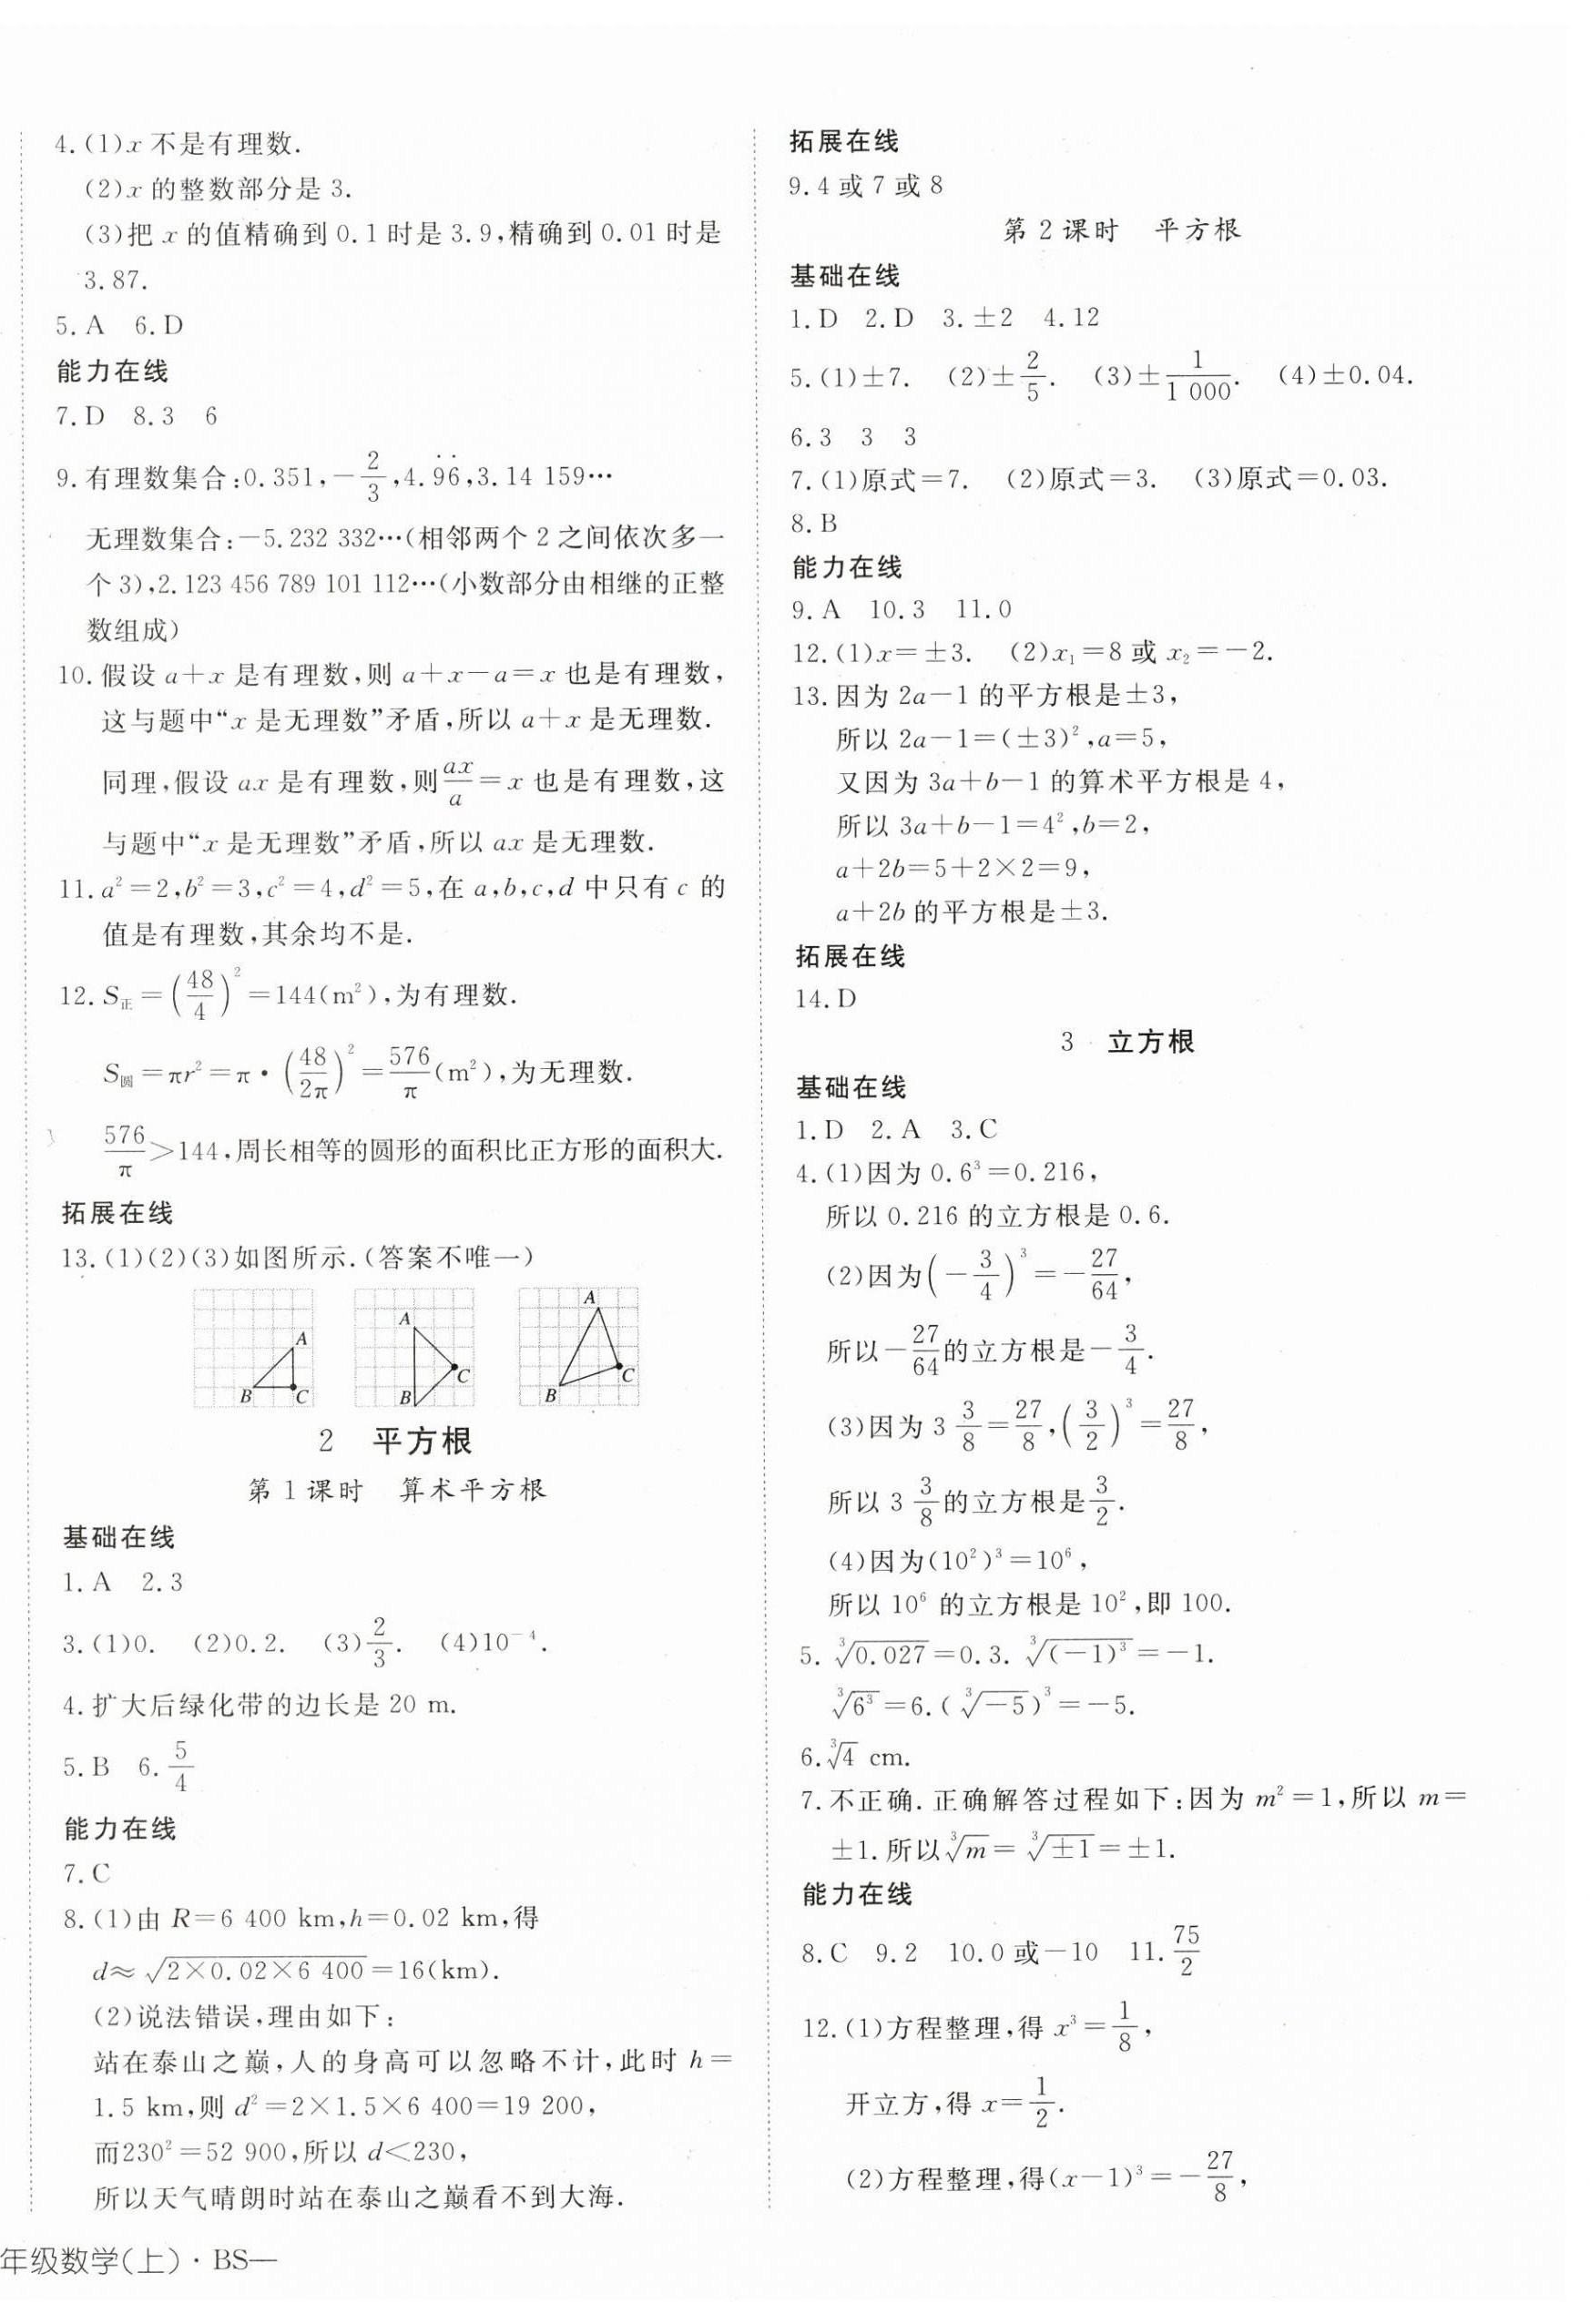 4.(1)x 不是有理数.
(2)x 的整数部分是 3.
(3)把 x 的值精确到 0.1 时是 3.9,精确到 0.01 时是
3.87.
5.A　6.D
能力在线
7.D　8.3　6
9.有理数集合:0.351,-2/3,4.9̇6̇,3.14 159…
无理数集合:-5.232 332…(相邻两个 2 之间依次多一
个 3),2.123 456 789 101 112…(小数部分由相继的正整
数组成)
10.假设 a+x 是有理数,则 a+x-a=x 也是有理数,
这与题中“x 是无理数”矛盾,所以 a+x 是无理数.
同理,假设 ax 是有理数,则ax/a=x 也是有理数,这
与题中“x 是无理数”矛盾,所以 ax 是无理数.
11.a²=2,b²=3,c²=4,d²=5,在 a,b,c,d 中只有 c 的
值是有理数,其余均不是.
12.S正=(48/4)²=144(m²),为有理数.
S圆=πr²=π·(48/2π)²=576/π(m²),为无理数.
576/π>144,周长相等的圆形的面积比正方形的面积大.
拓展在线
13.(1)(2)(3)如图所示.(答案不唯一)
A B C　A B C　A B C
2　平方根
第 1 课时　算术平方根
基础在线
1.A　2.3
3.(1)0.　(2)0.2.　(3)2/3.　(4)10⁻⁴.
4.扩大后绿化带的边长是 20 m.
5.B　6.5/4
能力在线
7.C
8.(1)由 R=6 400 km,h=0.02 km,得
d≈√(2×0.02×6 400)=16(km).
(2)说法错误,理由如下:
站在泰山之巅,人的身高可以忽略不计,此时 h=
1.5 km,则 d²=2×1.5×6 400=19 200,
而230²=52 900,所以 d<230,
所以天气晴朗时站在泰山之巅看不到大海.
年级数学(上)·BS—
拓展在线
9.4 或 7 或 8
第 2 课时　平方根
基础在线
1.D　2.D　3.±2　4.12
5.(1)±7.　(2)±2/5.　(3)±1/1 000.　(4)±0.04.
6.3　3　3
7.(1)原式=7.　(2)原式=3.　(3)原式=0.03.
8.B
能力在线
9.A　10.3　11.0
12.(1)x=±3.　(2)x₁=8 或 x₂=-2.
13.因为 2a-1 的平方根是±3,
所以 2a-1=(±3)²,a=5,
又因为 3a+b-1 的算术平方根是 4,
所以 3a+b-1=4²,b=2,
a+2b=5+2×2=9,
a+2b 的平方根是±3.
拓展在线
14.D
3　立方根
基础在线
1.D　2.A　3.C
4.(1)因为 0.6³=0.216,
所以 0.216 的立方根是 0.6.
(2)因为(-3/4)³=-27/64,
所以-27/64的立方根是-3/4.
(3)因为 3 3/8=27/8,(3/2)³=27/8,
所以 3 3/8的立方根是3/2.
(4)因为(10²)³=10⁶,
所以 10⁶ 的立方根是 10²,即 100.
5.∛0.027=0.3.∛(-1)³=-1.
∛6³=6.(∛-5)³=-5.
6.∛4 cm.
7.不正确.正确解答过程如下:因为 m²=1,所以 m=
±1.所以∛m=∛±1=±1.
能力在线
8.C　9.2　10.0 或-10　11.75/2
12.(1)方程整理,得 x³=1/8,
开立方,得 x=1/2.
(2)方程整理,得(x-1)³=-27/8,